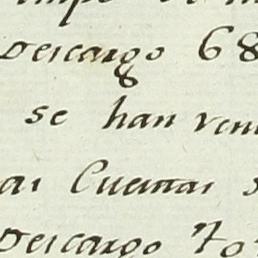 Descargo 68
se han ven
as Cuentas s
Descargo 70